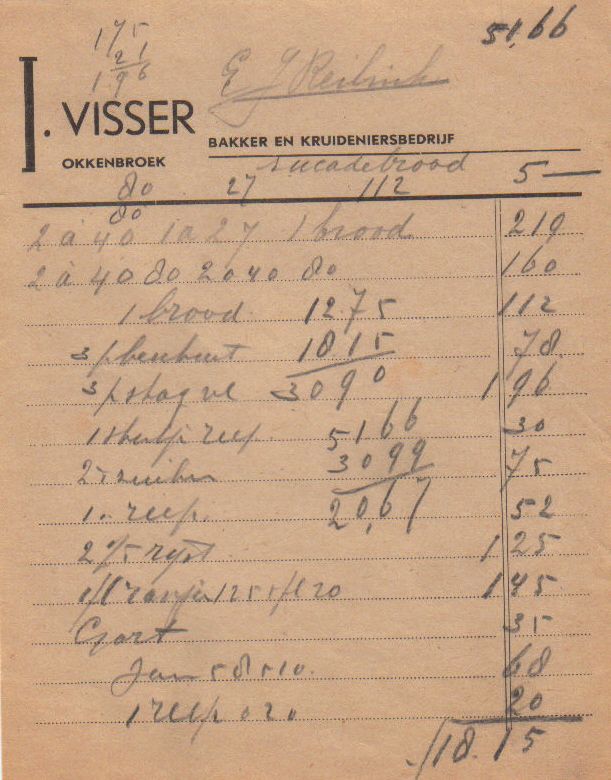 175 51,66
21
196
E J Reilink
J. VISSER
BAKKER EN KRUIDENIERSBEDRIJF
OKKENBROEK
sucadebrood 5 —
80 27 112
80
2 à 40 1 a 27 1 brood 219
2 à 40 80 2 0 40 80 160
1 brood 1275 112
3 p beschuit 1815 78
3 p 3090 196
1 reep 5166 30
2 3099 75
1 reep 20,67 52
2 p rijst 125
125 20 145
Gort 35
Jam 58 510 68
1 reep 0 20 20
18.15